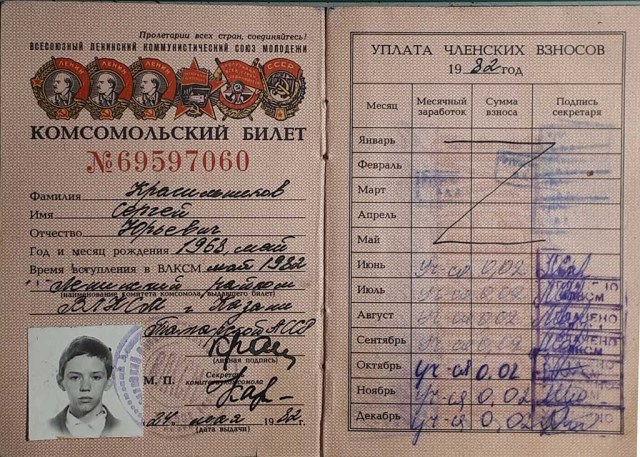 Пролетарии всех стран, соединяйтесь!
ВСЕСОЮЗНЫЙ ЛЕНИНСКИЙ КОММУНИСТИЧЕСКИЙ СОЮЗ МОЛОДЕЖИ
ЛЕНИН ЛЕНИН ЛЕНИН СССР
КОМСОМОЛЬСКИЙ БИЛЕТ
№69597060
Фамилия
Имя Сергей
Отчество Юрьевич
Год и месяц рождения 1968, май
Время вступления в ВЛКСМ май 1982
Ленинский райком
(наименование комитета комсомола, выдавшего билет)
ВЛКСМ г. Казани
Татарской АССР
(личная подпись)
М. П. Секретарь комитета комсомола
24 мая 1982 г.
(дата выдачи)
УПЛАТА ЧЛЕНСКИХ ВЗНОСОВ
1982 год
Месяц Месячный заработок Сумма взноса Подпись секретаря
Январь
Февраль
Март
Апрель
Май
Июнь уч-ся 0,02
Июль уч-ся 0,02
Август уч-ся 0,02
Сентябрь уч-ся 0,02
Октябрь уч-ся 0,02
Ноябрь уч-ся 0,02
Декабрь уч-ся 0,02